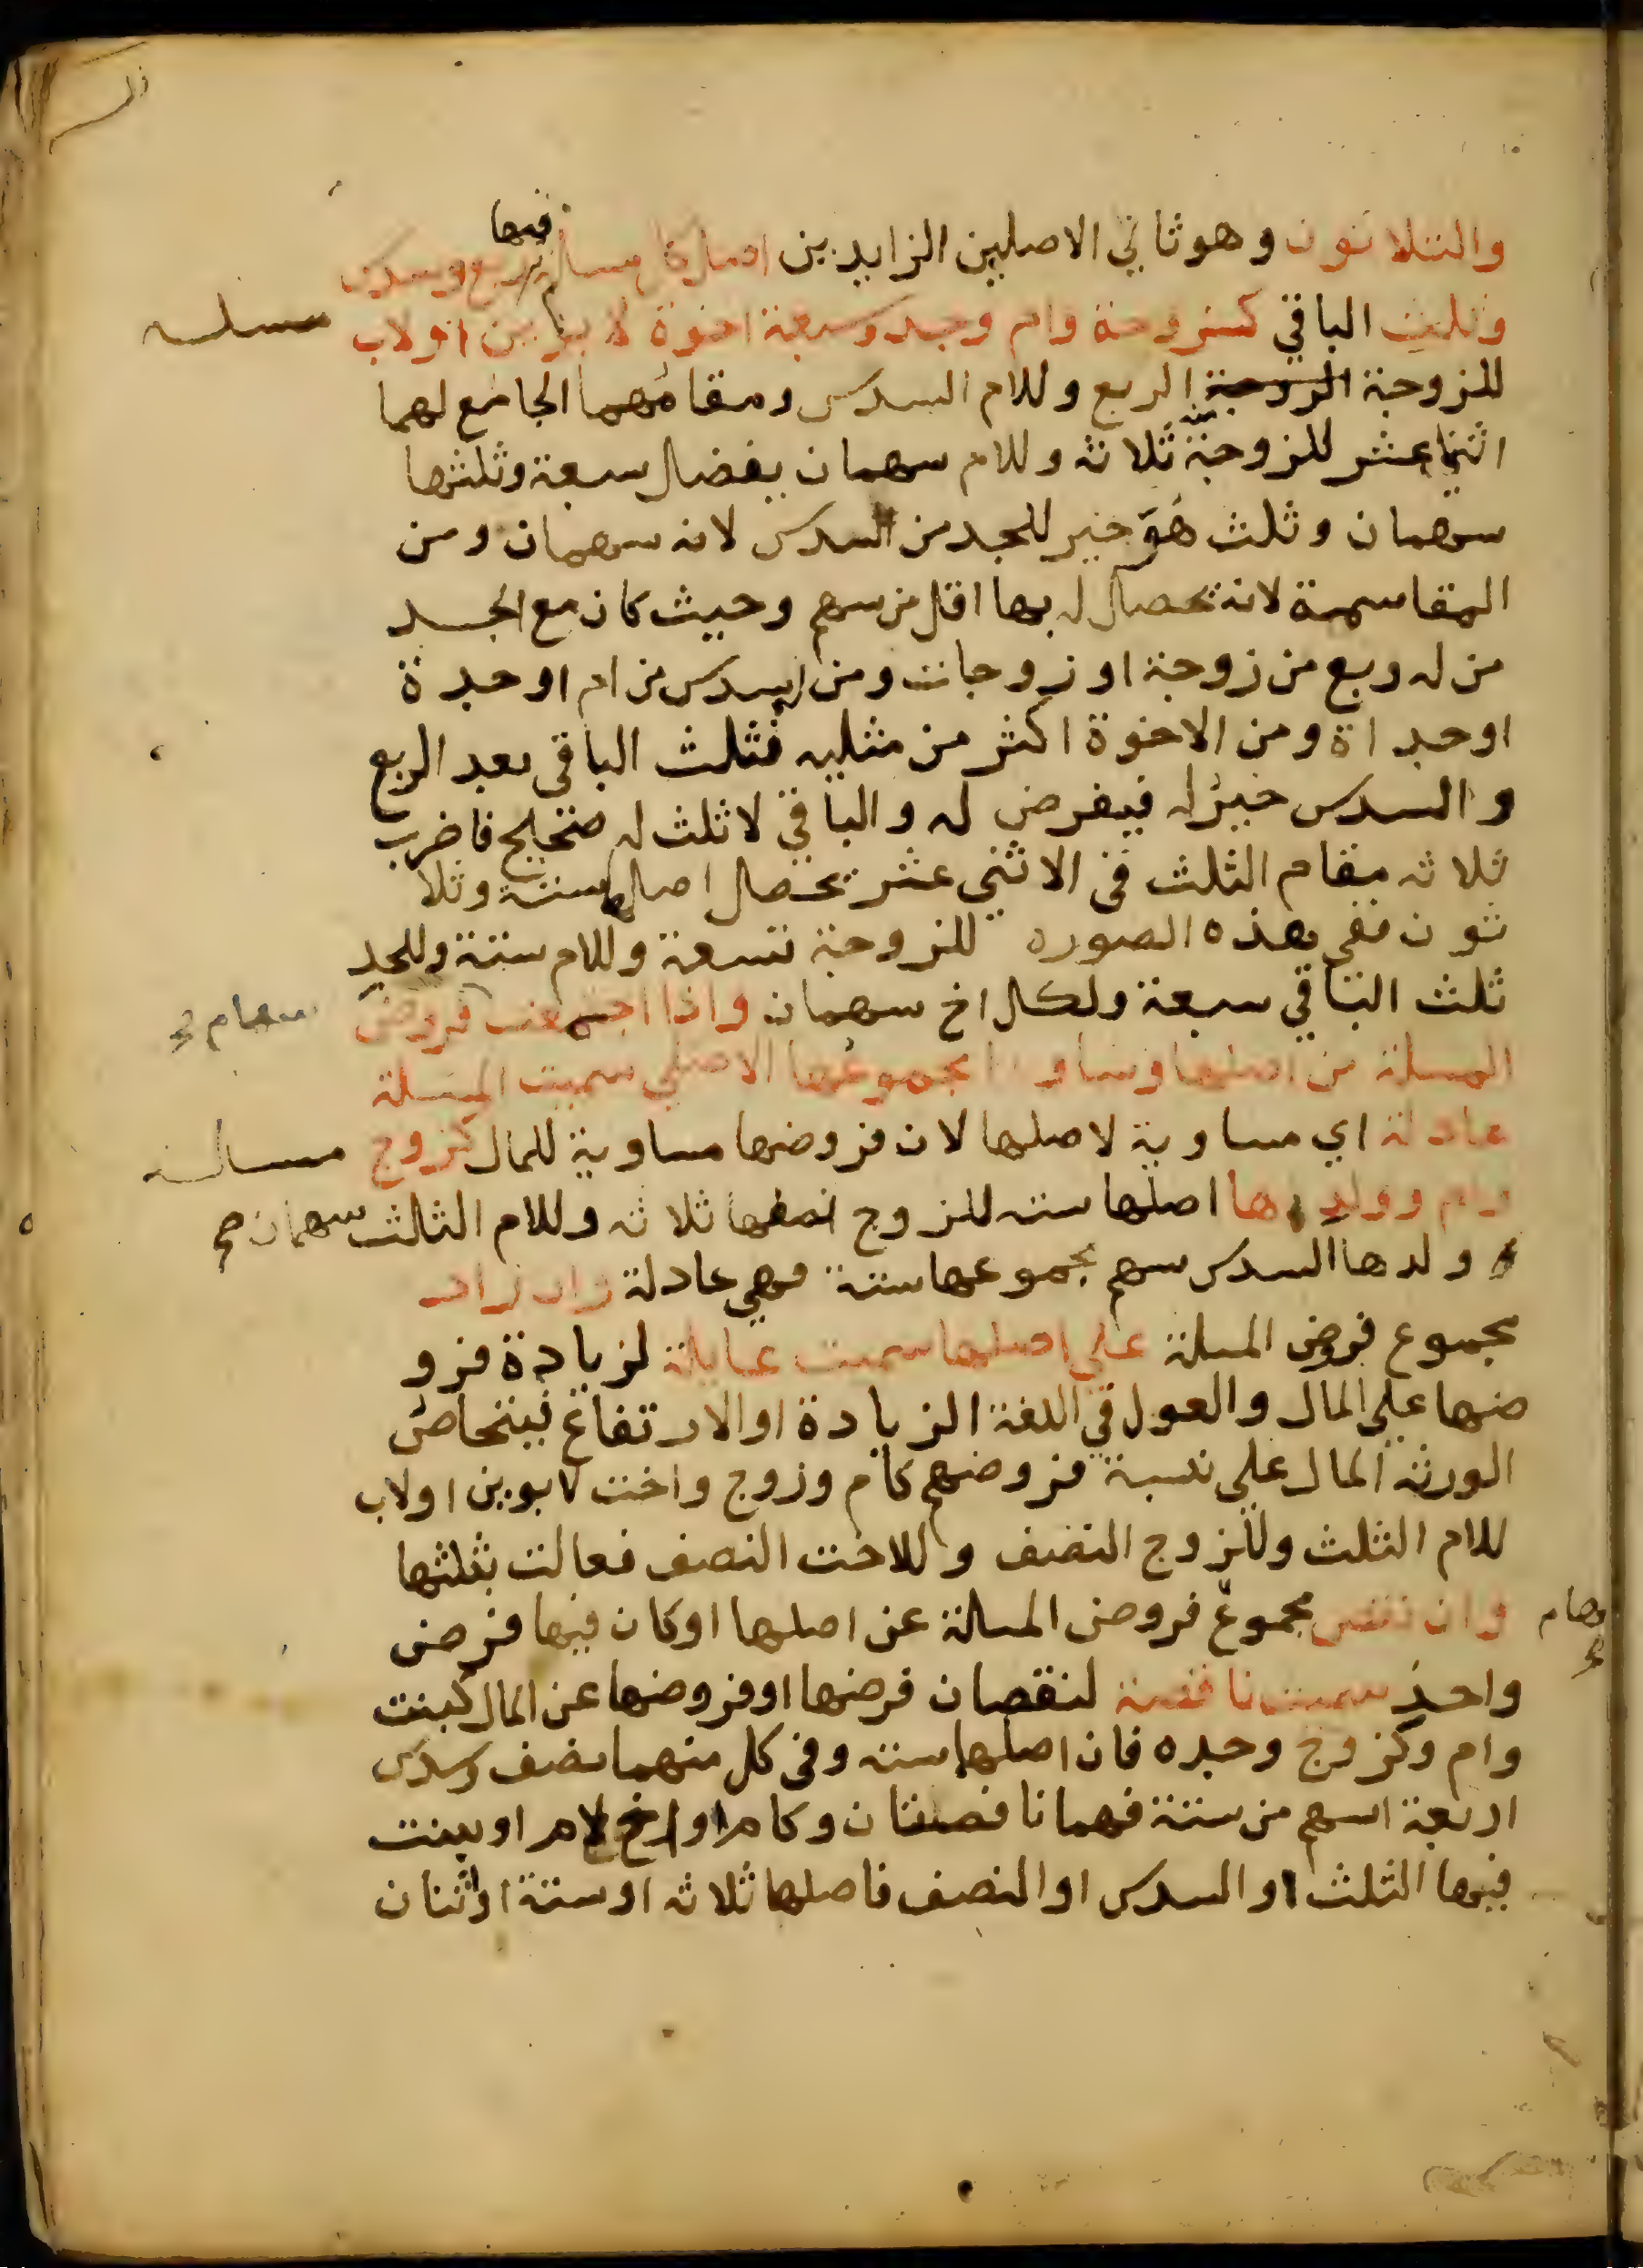 والثلاثون وهو ثاني الاصلين الزايدين اصل كل مسالة فيها ربع وسدس
وثلث الباقي كزوجة وام وجد وسبعة اخوة لابوين او لاب مسلـه
للزوجة الزوجة الربع وللام السدس ومقامهما الجامع لهما
اثنا عشر للزوجة ثلاثه وللام سهمان يفضل سبعة وثلثها
سهمان وثلث هو خير للجد من السدس لانه سهمان ومن
المقاسمة لانه تحصل له بها اقل من سهم وحيث كان مع الجد
من له ربع من زوجة او زوجات ومن له سدس من ام او جدة
او جداة ومن الاخوة اكثر من مثليه فثلث الباقي بعد الربع
والسدس خير له فيفرض له والباقي لا ثلث له صحيح فاضرب
ثلاثه مقام الثلث في الاثني عشر تحصل اصلها ستة وثلا
ثون ففي هذه الصوره للزوجة تسعة وللام ستة وللجد
ثلث الباقي سبعة ولكل اخ سهمان واذا اجتمعت فروض سهام ع
المسلة من اصلها وساو مجموعها الاصل سميت المسلة
عادلة اي مساوية لاصلها لان فروضها مساوية للمال كزوج مسالـه
وام وولدها اصلها سته للزوج نصفها ثلاثه وللام الثلث سهمان صح
ولدها السدس سهم مجموعها ستة فهي عادلة وان زاد
مجموع فروض المسلة على اصلها سميت عايلة لزيادة فرو
ضها على المال والعول في اللغة الزيادة او الارتفاع فيتحاص
الورثه المال على نسبة فروضهم كام وزوج واخت لابوين او لاب
للام الثلث وللزوج النصف وللاخت النصف فعالت بثلثها
وان نقص مجموع فروض المسالة عن اصلها او كان فيها فرض
واحد سميت ناقصة لنقصان فرضها او فروضها عن المال كبنت
وام وكزوج وجده فان اصلها سته وفي كل منهما نصف وسدس
اربعة اسهم من ستة فهما ناقصتان وكام او اخ لام او بنت
فيها الثلث او السدس او النصف فاصلها ثلاثه او ستة او ثنان